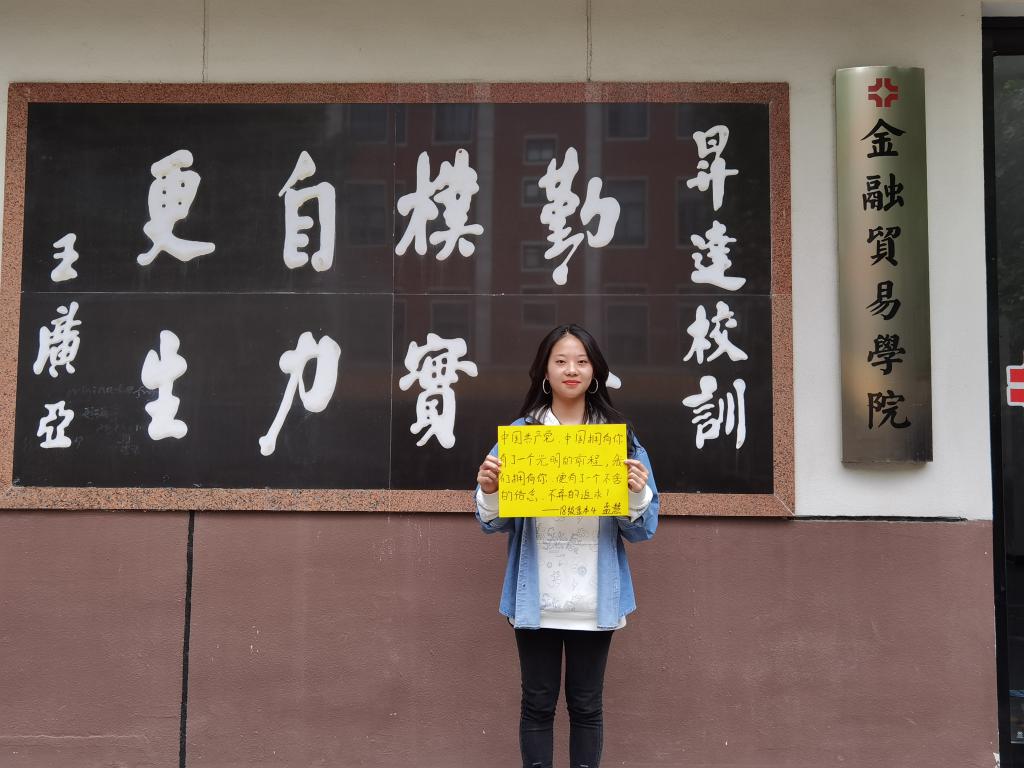 金融貿易學院
昇達校訓
勤
樸實
自力
更生
王廣亞
中国共产党,中国拥有你
有了一个光明的前程,我
们拥有你,便有了一个不舍
的信念,不弃的追求!
——18级 本4 孟慧